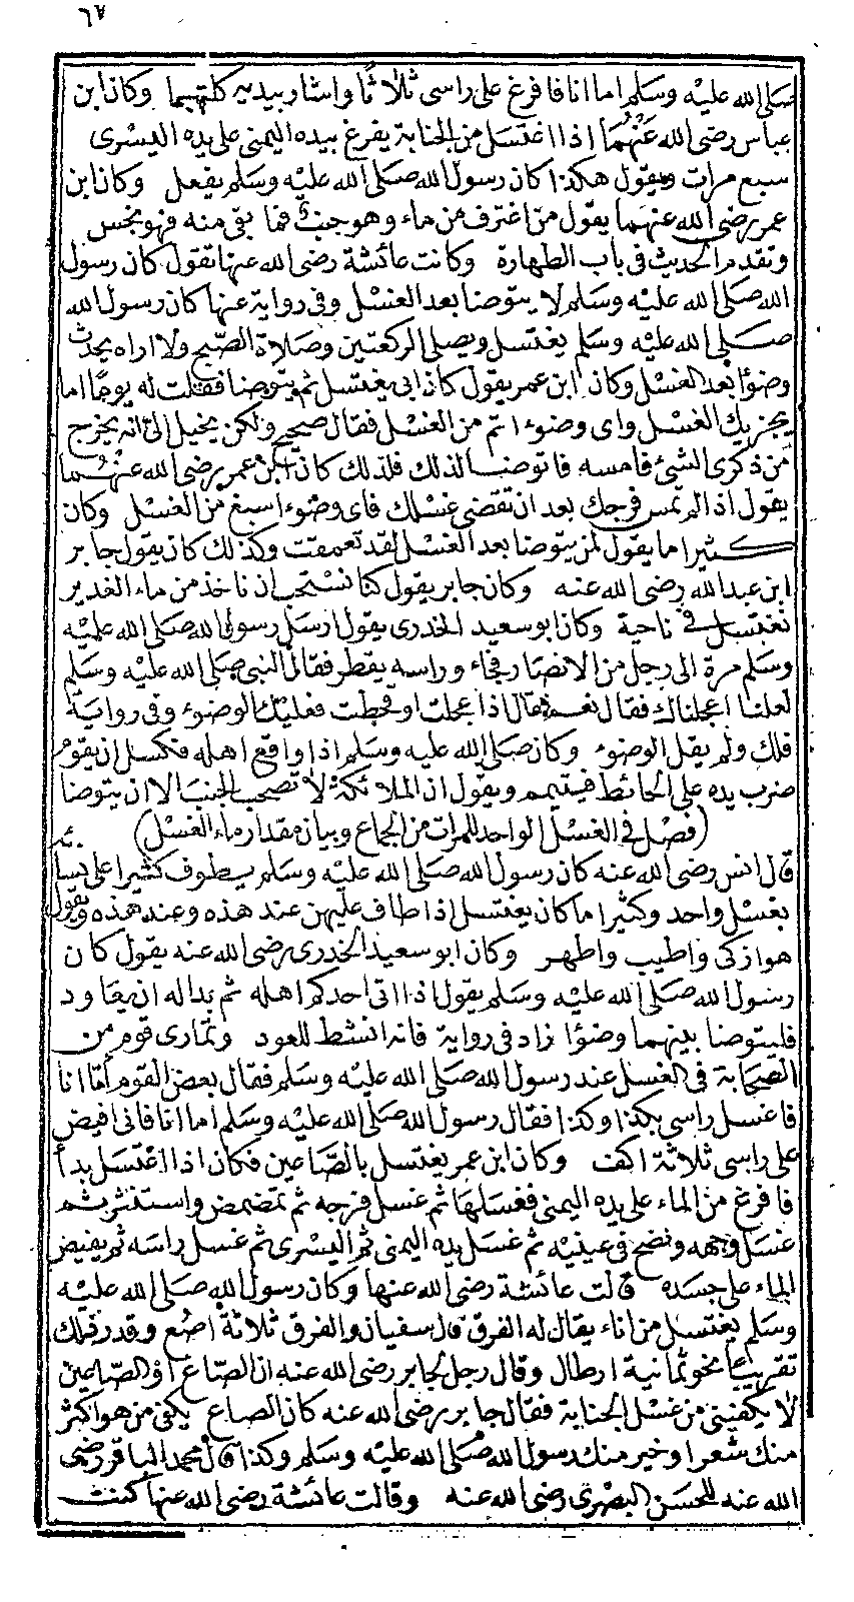 ٦٧
صلى الله عليه وسلم اما انا فافرغ على راسى ثلاثا واشار بيديه كلتيهما وكان ابن
عباس رضى الله عنهما اذا اغتسل من الجنابة يفرغ بيده اليمنى على يده اليسرى
سبع مرات ويقول هكذا كان رسول الله صلى الله عليه وسلم يفعل وكان ابن
عمر رضى الله عنهما يقول من اغترف من ماء وهو جنب فما بقى منه فهو نجس
وتقدم الحديث فى باب الطهارة وكانت عائشة رضى الله عنها تقول كان رسول
الله صلى الله عليه وسلم لا يتوضا بعد الغسل وفى رواية عنها كان رسول الله
صلى الله عليه وسلم يغتسل ويصلى الركعتين وصلاة الصبح ولا اراه يحدث
وضوءا بعد الغسل وكان ابن عمر يقول كان ابى يغتسل ثم يتوضا فقلت له يوما اما
يجزيك الغسل واى وضوء اتم من الغسل فقال صحيح ولكن يخيل الى انه يخرج
من ذكرى الشئ فامسه فاتوضا لذلك فلذلك كان ابن عمر رضى الله عنهما
يقول اذا لم تمس فرجك بعد ان تقضى غسلك فاى وضوء اسبغ من الغسل وكان
كثيرا ما يقول لمن يتوضا بعد الغسل لقد تعمقت وكذلك كان يقول جابر
ابن عبد الله رضى الله عنه وكان جابر يقول كنا نستحب ان ناخذ من ماء الغدير
نغتسل فى ناحية وكان ابو سعيد الخدرى يقول ارسل رسول الله صلى الله عليه
وسلم مرة الى رجل من الانصار فجاء وراسه يقطر فقال النبى صلى الله عليه وسلم
لعلنا اعجلناك فقال نعم فقال اذا عجلت او قحطت فعليك الوضوء وفى رواية
فلك ولم يقل الوضوء وكان صلى الله عليه وسلم اذا واقع اهله فكسل ان يقوم
ضرب يده على الحائط فيتيمم ويقول ان الملائكة لا تصحب الجنب الا ان يتوضا
(فصل فى الغسل الواحد للمرات من الجماع وبيان مقدار ماء الغسل)
قال انس رضى الله عنه كان رسول الله صلى الله عليه وسلم يطوف كثيرا على نسائه
بغسل واحد وكثيرا ما كان يغتسل اذا طاف عليهن عند هذه وعند هذه ويقول
هو ازكى واطيب واطهر وكان ابو سعيد الخدرى رضى الله عنه يقول كان
رسول الله صلى الله عليه وسلم يقول اذا اتى احدكم اهله ثم بدا له ان يعاود
فليتوضا بينهما وضوءا زاد فى رواية فانه انشط للعود وتمارى قوم من
الصحابة فى الغسل عند رسول الله صلى الله عليه وسلم فقال بعض القوم أمّا انا
فاغسل راسى بكذا وكذا فقال رسول الله صلى الله عليه وسلم اما انا فانى افيض
على راسى ثلاثة اكف وكان ابن عمر يغتسل بالصاعين فكان اذا اغتسل بدأ
فافرغ من الماء على يده اليمنى فغسلها ثم غسل فرجه ثم تمضمض واستنثر ثم
غسل وجهه ونضح فى عينيه ثم غسل يده اليمنى ثم اليسرى ثم غسل راسه ثم يفيض
الماء على جسده قالت عائشة رضى الله عنها وكان رسول الله صلى الله عليه
وسلم يغتسل من اناء يقال له الفرق قال سفيان والفرق ثلاثة اصع وقدر ذلك
تقريبا نحو ثمانية ارطال وقال رجل لجابر رضى الله عنه ان الصاع أو الصاعين
لا يكفينى من غسل الجنابة فقال جابر رضى الله عنه كان الصاع يكفى من هو اكثر
منك شعرا وخير منك رسول الله صلى الله عليه وسلم وكذا قال محمد الباقر رضى
الله عنه للحسن البصرى رضى الله عنه وقالت عائشة رضى الله عنها كنت